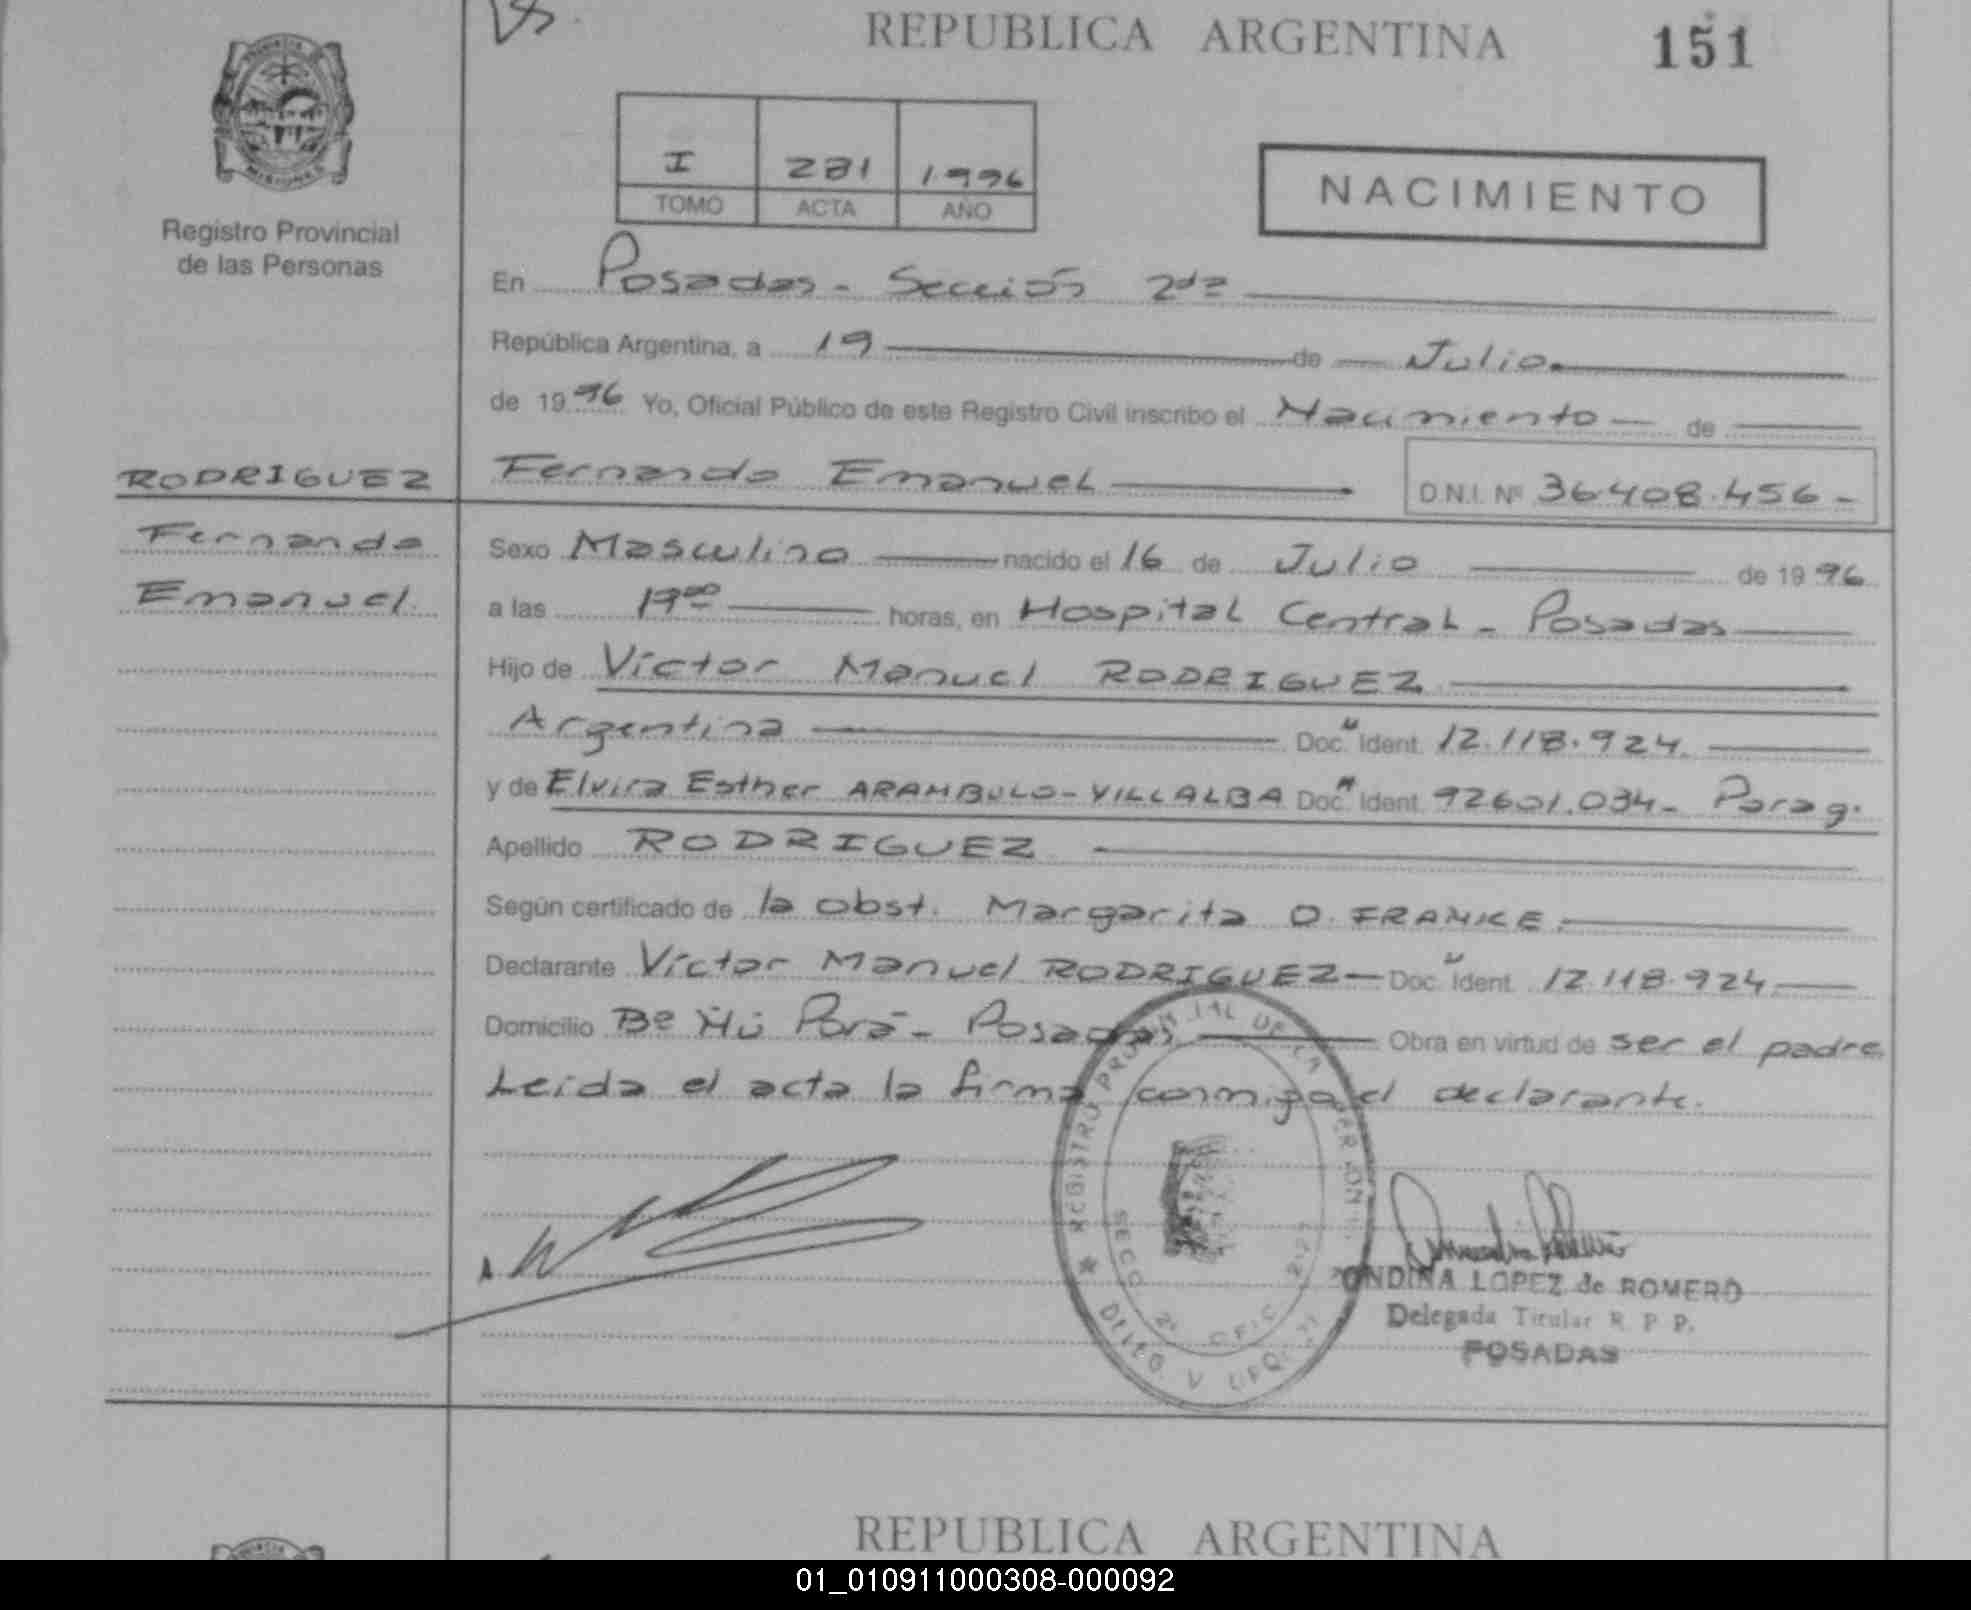 REPUBLICA ARGENTINA
151
I 281 1996
TOMO ACTA AÑO
NACIMIENTO
MISIONES
Registro Provincial
de las Personas
En Posadas - Sección 2da
República Argentina, a 19 de Julio
de 1996 Yo, Oficial Público de este Registro Civil inscribo el Nacimiento de
RODRIGUEZ Fernando Emanuel D.N.I. Nº 36408.456-
Fernando
Emanuel.
Sexo Masculino nacido el 16 de Julio de 1996
a las 19ºº horas, en Hospital Central - Posadas
Hijo de Víctor Manuel RODRIGUEZ
Argentina Doc. Ident. 12.118.924
y de Elvira Esther ARAMBULO-VILLALBA Doc. Ident. 92601.034- Parag.
Apellido RODRIGUEZ
Según certificado de la obst. Margarita O. FRANKE.
Declarante Víctor Manuel RODRIGUEZ Doc. Ident. 12.118.924
Domicilio Bº Ñú Porá - Posadas Obra en virtud de ser el padre
Leída el acta la firma conmigo el declarante.
ONDINA LOPEZ de ROMERO
Delegada Titular R. P. P.
POSADAS
REPUBLICA ARGENTINA
01_010911000308-000092